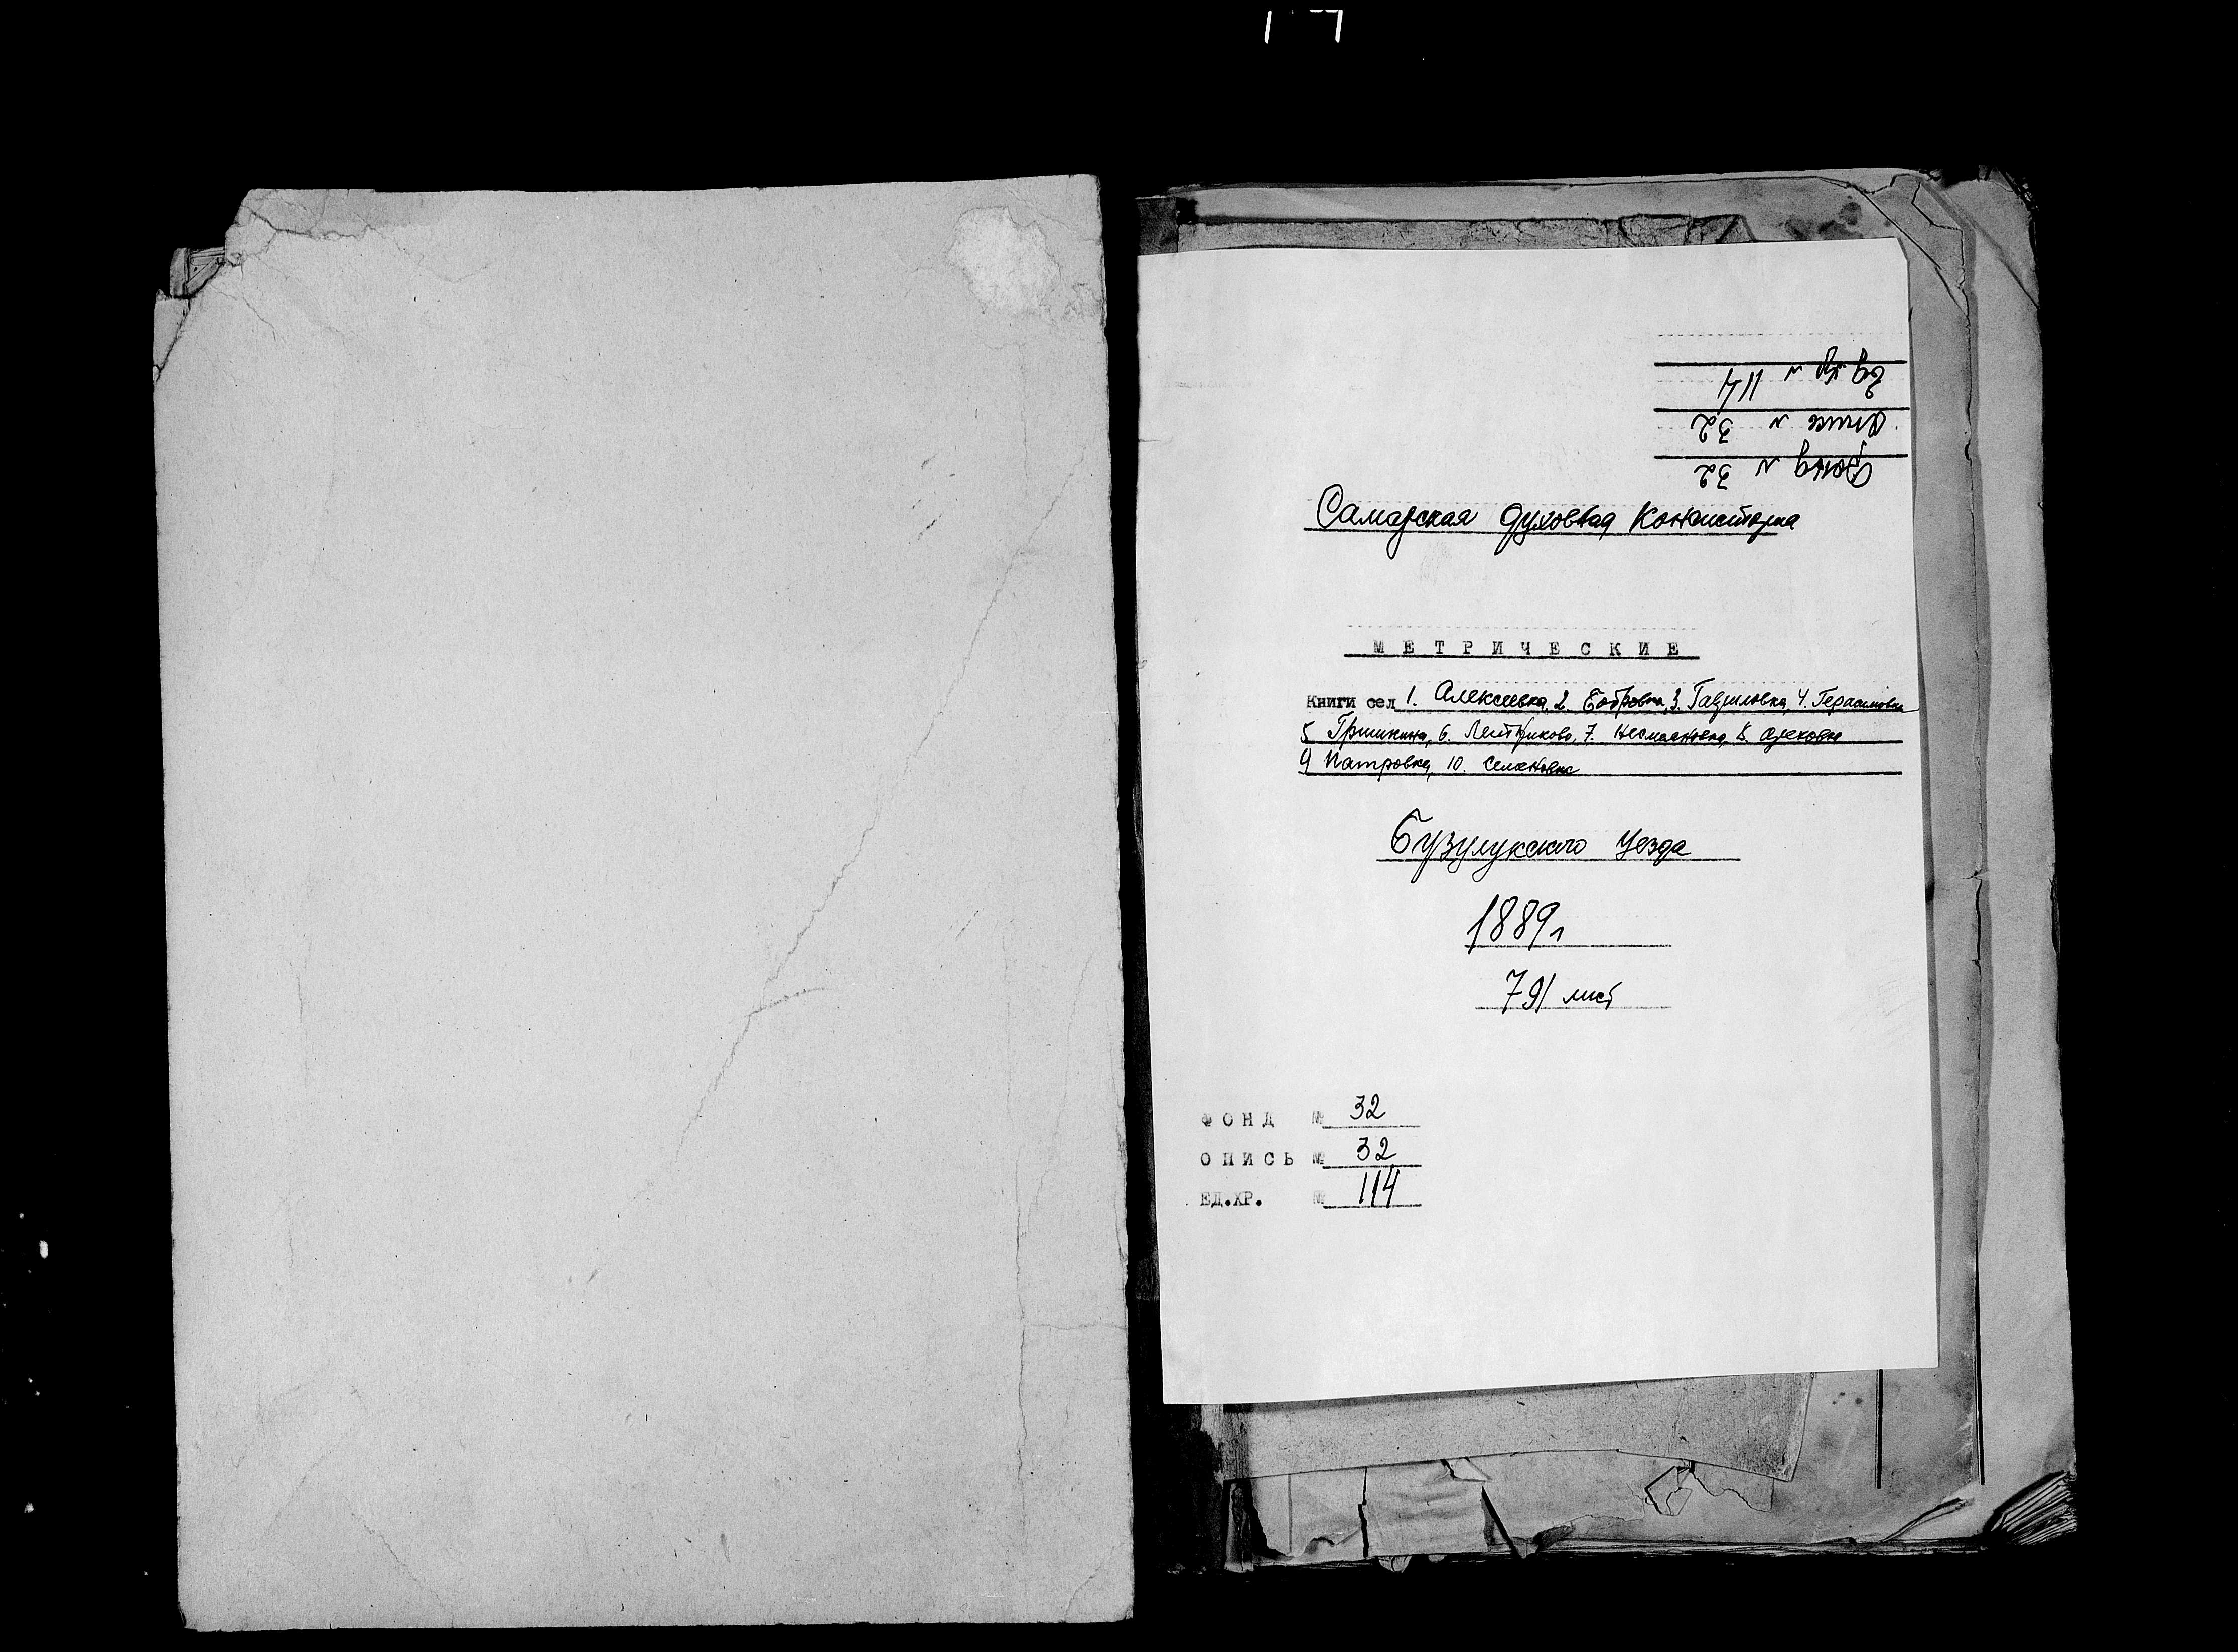 Ед. хр. № 114
Опись № 32
Фонд № 32
Самарская духовная Консистория
МЕТРИЧЕСКИЕ
Книги сел 1. Алексеевка, 2. Бобровка, 3. Гавриловка, 4. Герасимовка
5 Гришкина, 6. 7. Несмеяновка, 8.
9 Патровка, 10.
Бузулукского уезда
1889 г
791 лист
ФОНД № 32
ОПИСЬ № 32
ЕД.ХР. № 114